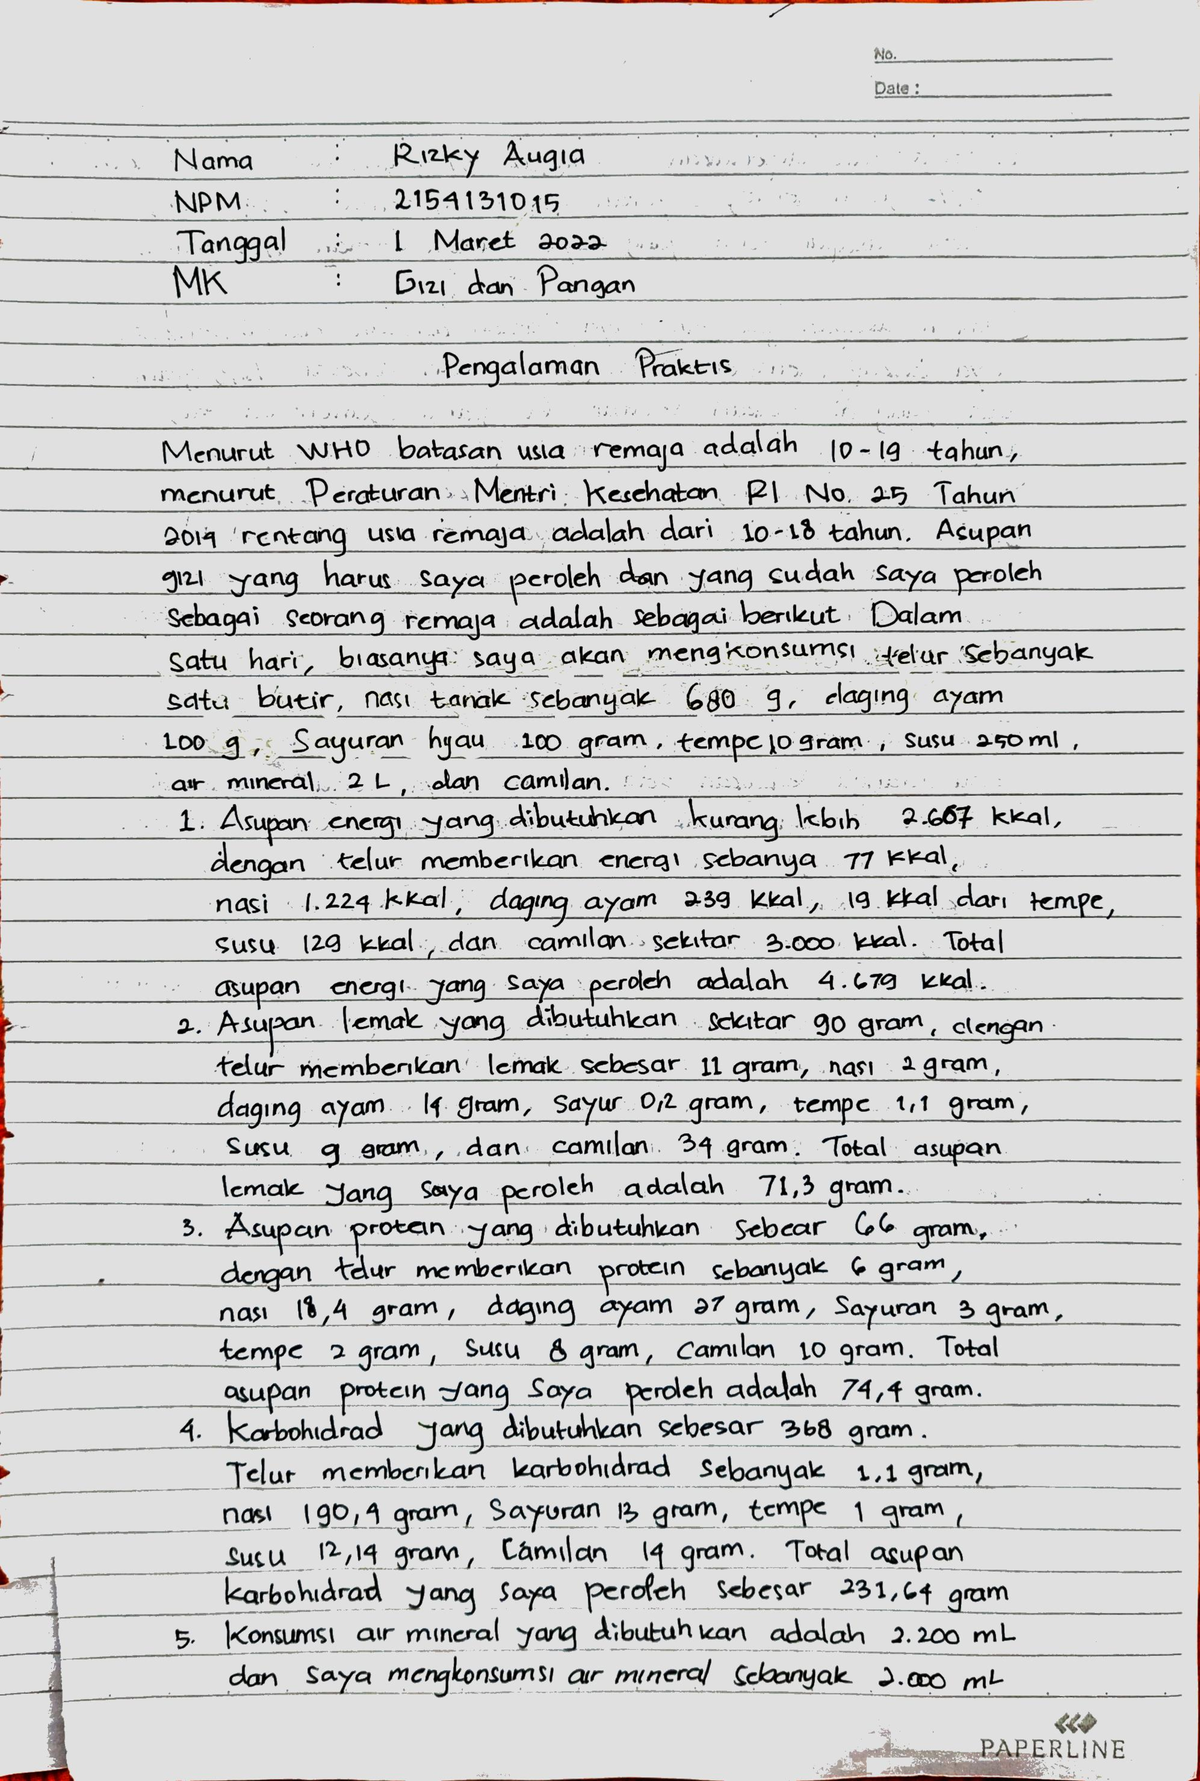 No.
Date :
Nama : Rizky Augia
NPM : 2154131015
Tanggal : 1 Maret 2022
MK : Gizi dan Pangan
Pengalaman Praktis
Menurut WHO batasan usia remaja adalah 10-19 tahun,
menurut Peraturan Mentri Kesehatan RI No. 25 Tahun
2014 rentang usia remaja adalah dari 10-18 tahun. Asupan
gizi yang harus saya peroleh dan yang sudah saya peroleh
sebagai seorang remaja adalah sebagai berikut. Dalam
satu hari, biasanya saya akan mengkonsumsi telur sebanyak
satu butir, nasi tanak sebanyak 680 g, daging ayam
100 g, Sayuran hijau 100 gram, tempe 10 gram, susu 250 ml,
air mineral 2 L, dan camilan.
1. Asupan energi yang dibutuhkan kurang lebih 2.667 kkal,
dengan telur memberikan energi sebanya 77 kkal,
nasi 1.224 kkal, daging ayam 239 kkal, 19 kkal dari tempe,
susu 129 kkal, dan camilan sekitar 3.000 kkal. Total
asupan energi yang saya peroleh adalah 4.679 kkal.
2. Asupan lemak yang dibutuhkan sekitar 90 gram, dengan
telur memberikan lemak sebesar 11 gram, nasi 2 gram,
daging ayam 14 gram, sayur 0,2 gram, tempe 1,1 gram,
susu 9 gram, dan camilan 34 gram. Total asupan
lemak yang saya peroleh adalah 71,3 gram.
3. Asupan protein yang dibutuhkan sebear 66 gram,
dengan telur memberikan protein sebanyak 6 gram,
nasi 18,4 gram, daging ayam 27 gram, Sayuran 3 gram,
tempe 2 gram, susu 8 gram, camilan 10 gram. Total
asupan protein yang saya peroleh adalah 74,4 gram.
4. Karbohidrad yang dibutuhkan sebesar 368 gram.
Telur memberikan karbohidrad sebanyak 1,1 gram,
nasi 190,4 gram, Sayuran 13 gram, tempe 1 gram,
susu 12,14 gram, Camilan 14 gram. Total asupan
karbohidrad yang saya peroleh sebesar 231,64 gram
5. Konsumsi air mineral yang dibutuhkan adalah 2.200 mL
dan saya mengkonsumsi air mineral sebanyak 2.000 mL
PAPERLINE